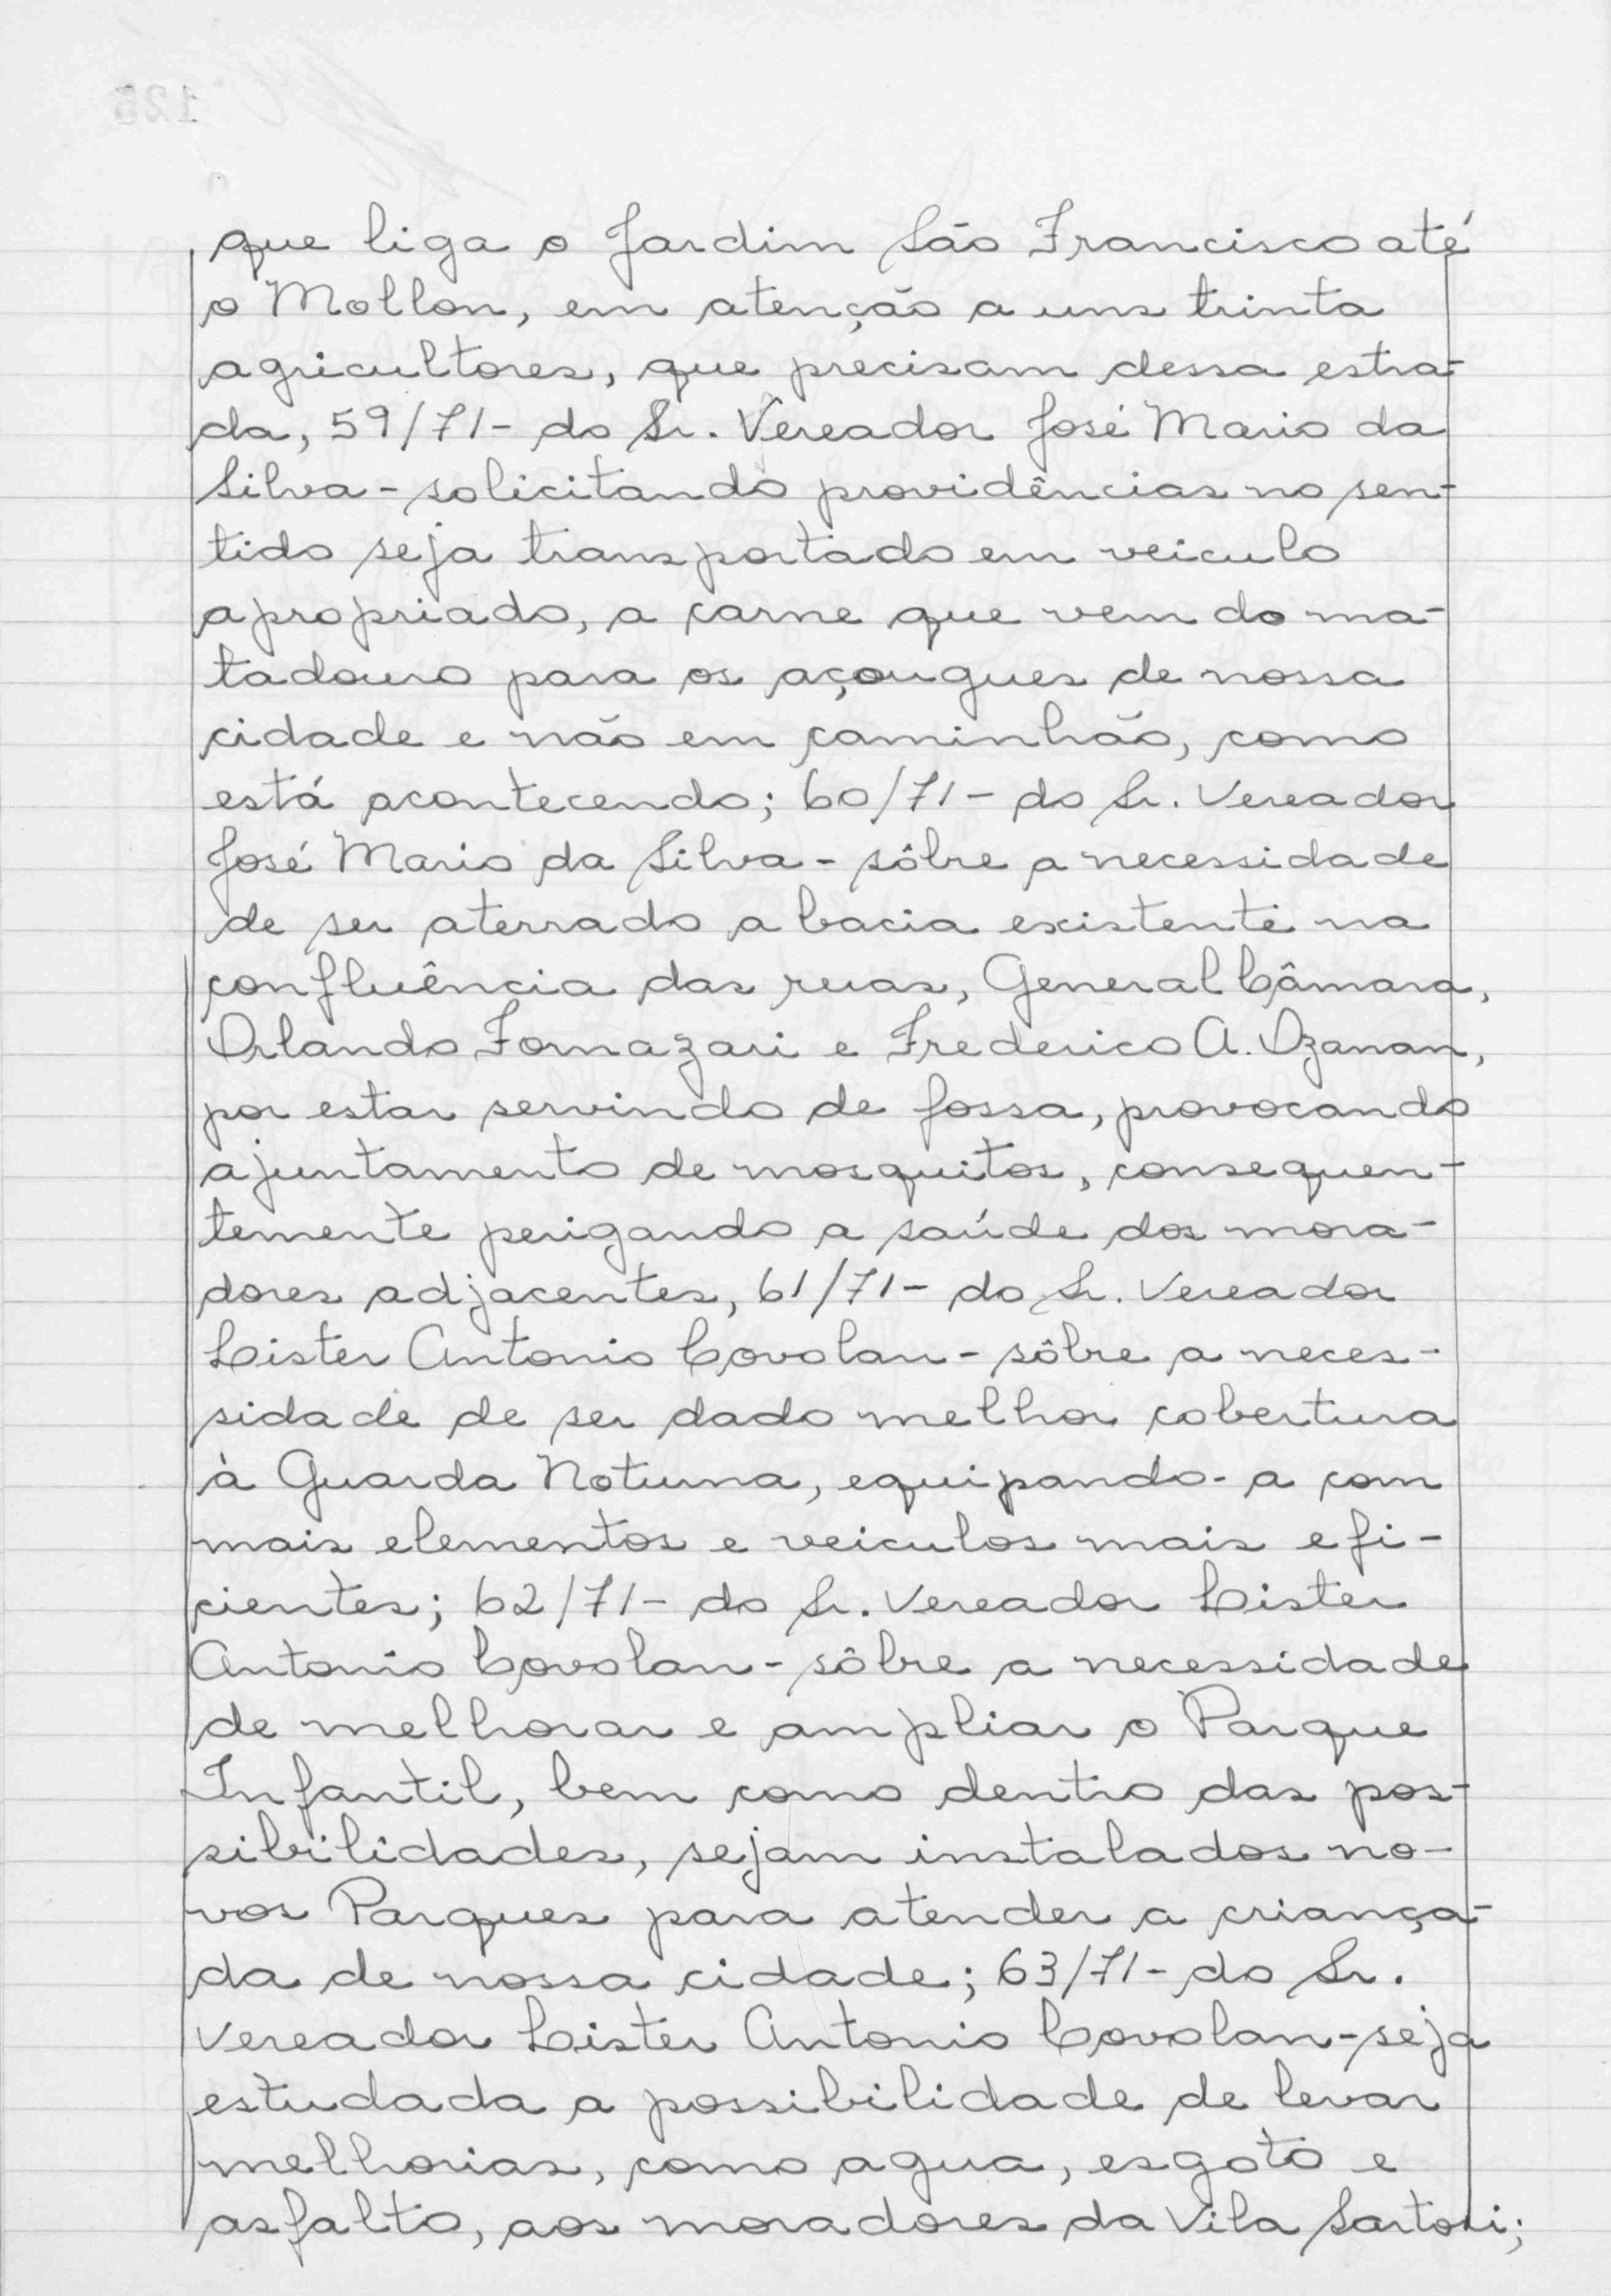 que liga o Jardim São Francisco até
o Mollon, em atenção a uns trinta
agricultores, que precisam dessa estra-
da, 59/71- do Sr. Vereador José Mario da
Silva - solicitando providências no sen-
tido seja transportado em veiculo
apropriado, a carne que vem do ma-
tadouro para os açougues de nossa
cidade e não em caminhão, como
está acontecendo; 60/71- do Sr. Vereador
José Mario da Silva - sôbre a necessidade
de ser aterrado a bacia existente na
confluência das ruas, General Câmara,
Orlando Fornazari e Frederico A. Ozanan,
por estar servindo de fossa, provocando
ajuntamento de mosquitos, consequen-
temente perigando a saúde dos mora-
dores adjacentes, 61/71- do Sr. Vereador
Lister Antonio Covolan - sôbre a neces-
sidade de ser dado melhor cobertura
à Guarda Noturna, equipando-a com
mais elementos e veiculos mais efi-
cientes; 62/71- do Sr. Vereador Lister
Antonio Covolan - sôbre a necessidade
de melhorar e ampliar o Parque
Infantil, bem como dentro das pos-
sibilidades, sejam instalados no-
vos Parques para atender a criança-
da de nossa cidade; 63/71- do Sr.
Vereador Lister Antonio Covolan - seja
estudada a possibilidade de levar
melhorias, como agua, esgoto e
asfalto, aos moradores da Vila Sartori;